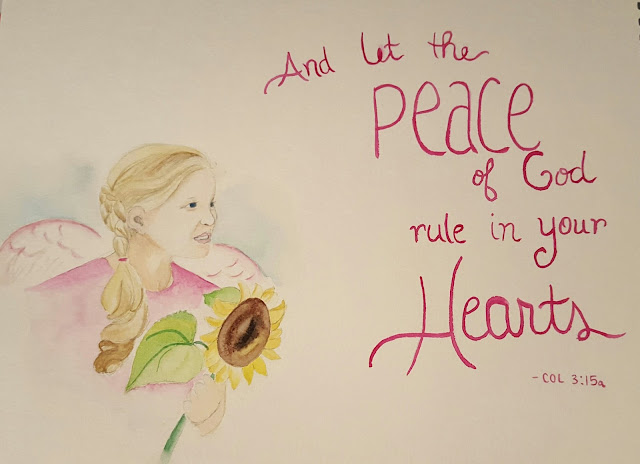 And let the
peace
of God
rule in your
Hearts
- COL 3:15a